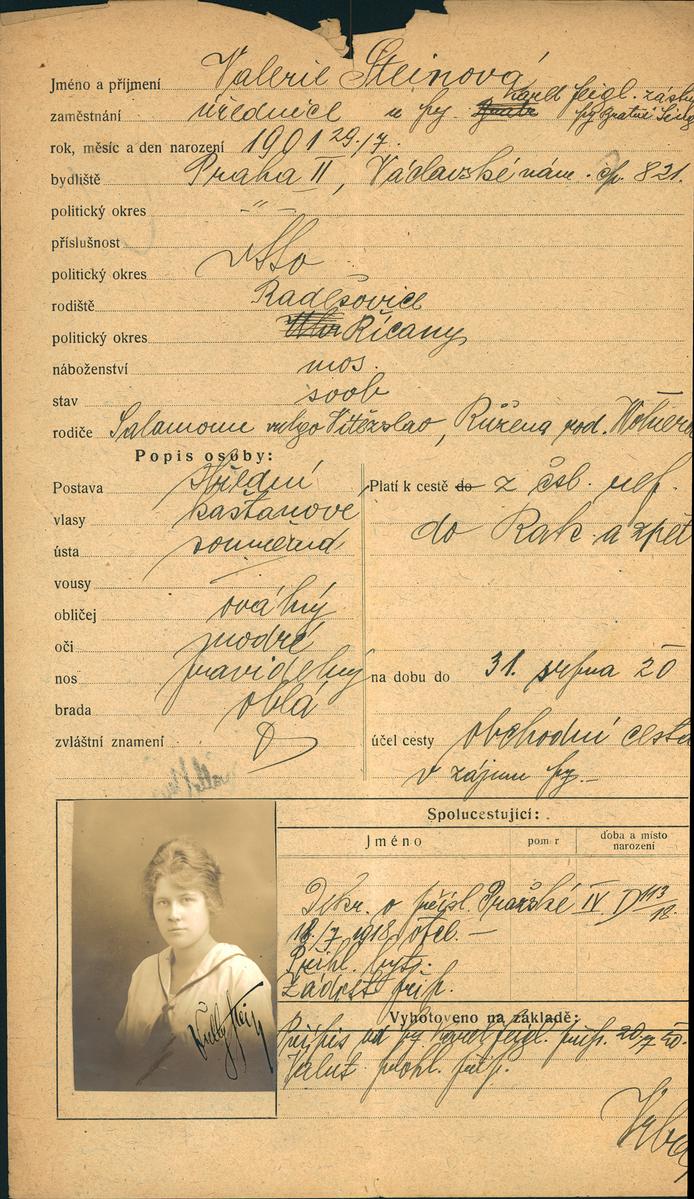 Jméno a příjmení Valerie Steinová
zaměstnání úřednice u fy. Karel Feigl. zást.
rok, měsíc a den narození 1901 29./7.
bydliště Praha II, Václavské nám. čp. 821.
politický okres -"-
příslušnost
politický okres dtto
rodiště Radešovice
politický okres Říčany
náboženství mos.
stav svob
rodiče Salamoun vulgo Vítězslav, Růžena roz.
Popis osoby:
Postava střední
vlasy kaštanové
ústa souměrná
vousy
obličej oválný
oči modré
nos pravidelný
brada oblá
zvláštní znamení
Platí k cestě do z čsl. rep.
do Rak. a zpět
na dobu do 31. srpna 20
účel cesty obchodní cesta
v zájmu fy.-
Spolucestující:
Jméno poměr doba a místo narození
Dekr. o přísl. Pražské IV D 113/18.
18/7 1918
Přihl.
Žádost přip.
Vyhotoveno na základě:
Přípis od fy Karel Feigl. přip. 20.7 20.
Valut. prohl. přip.